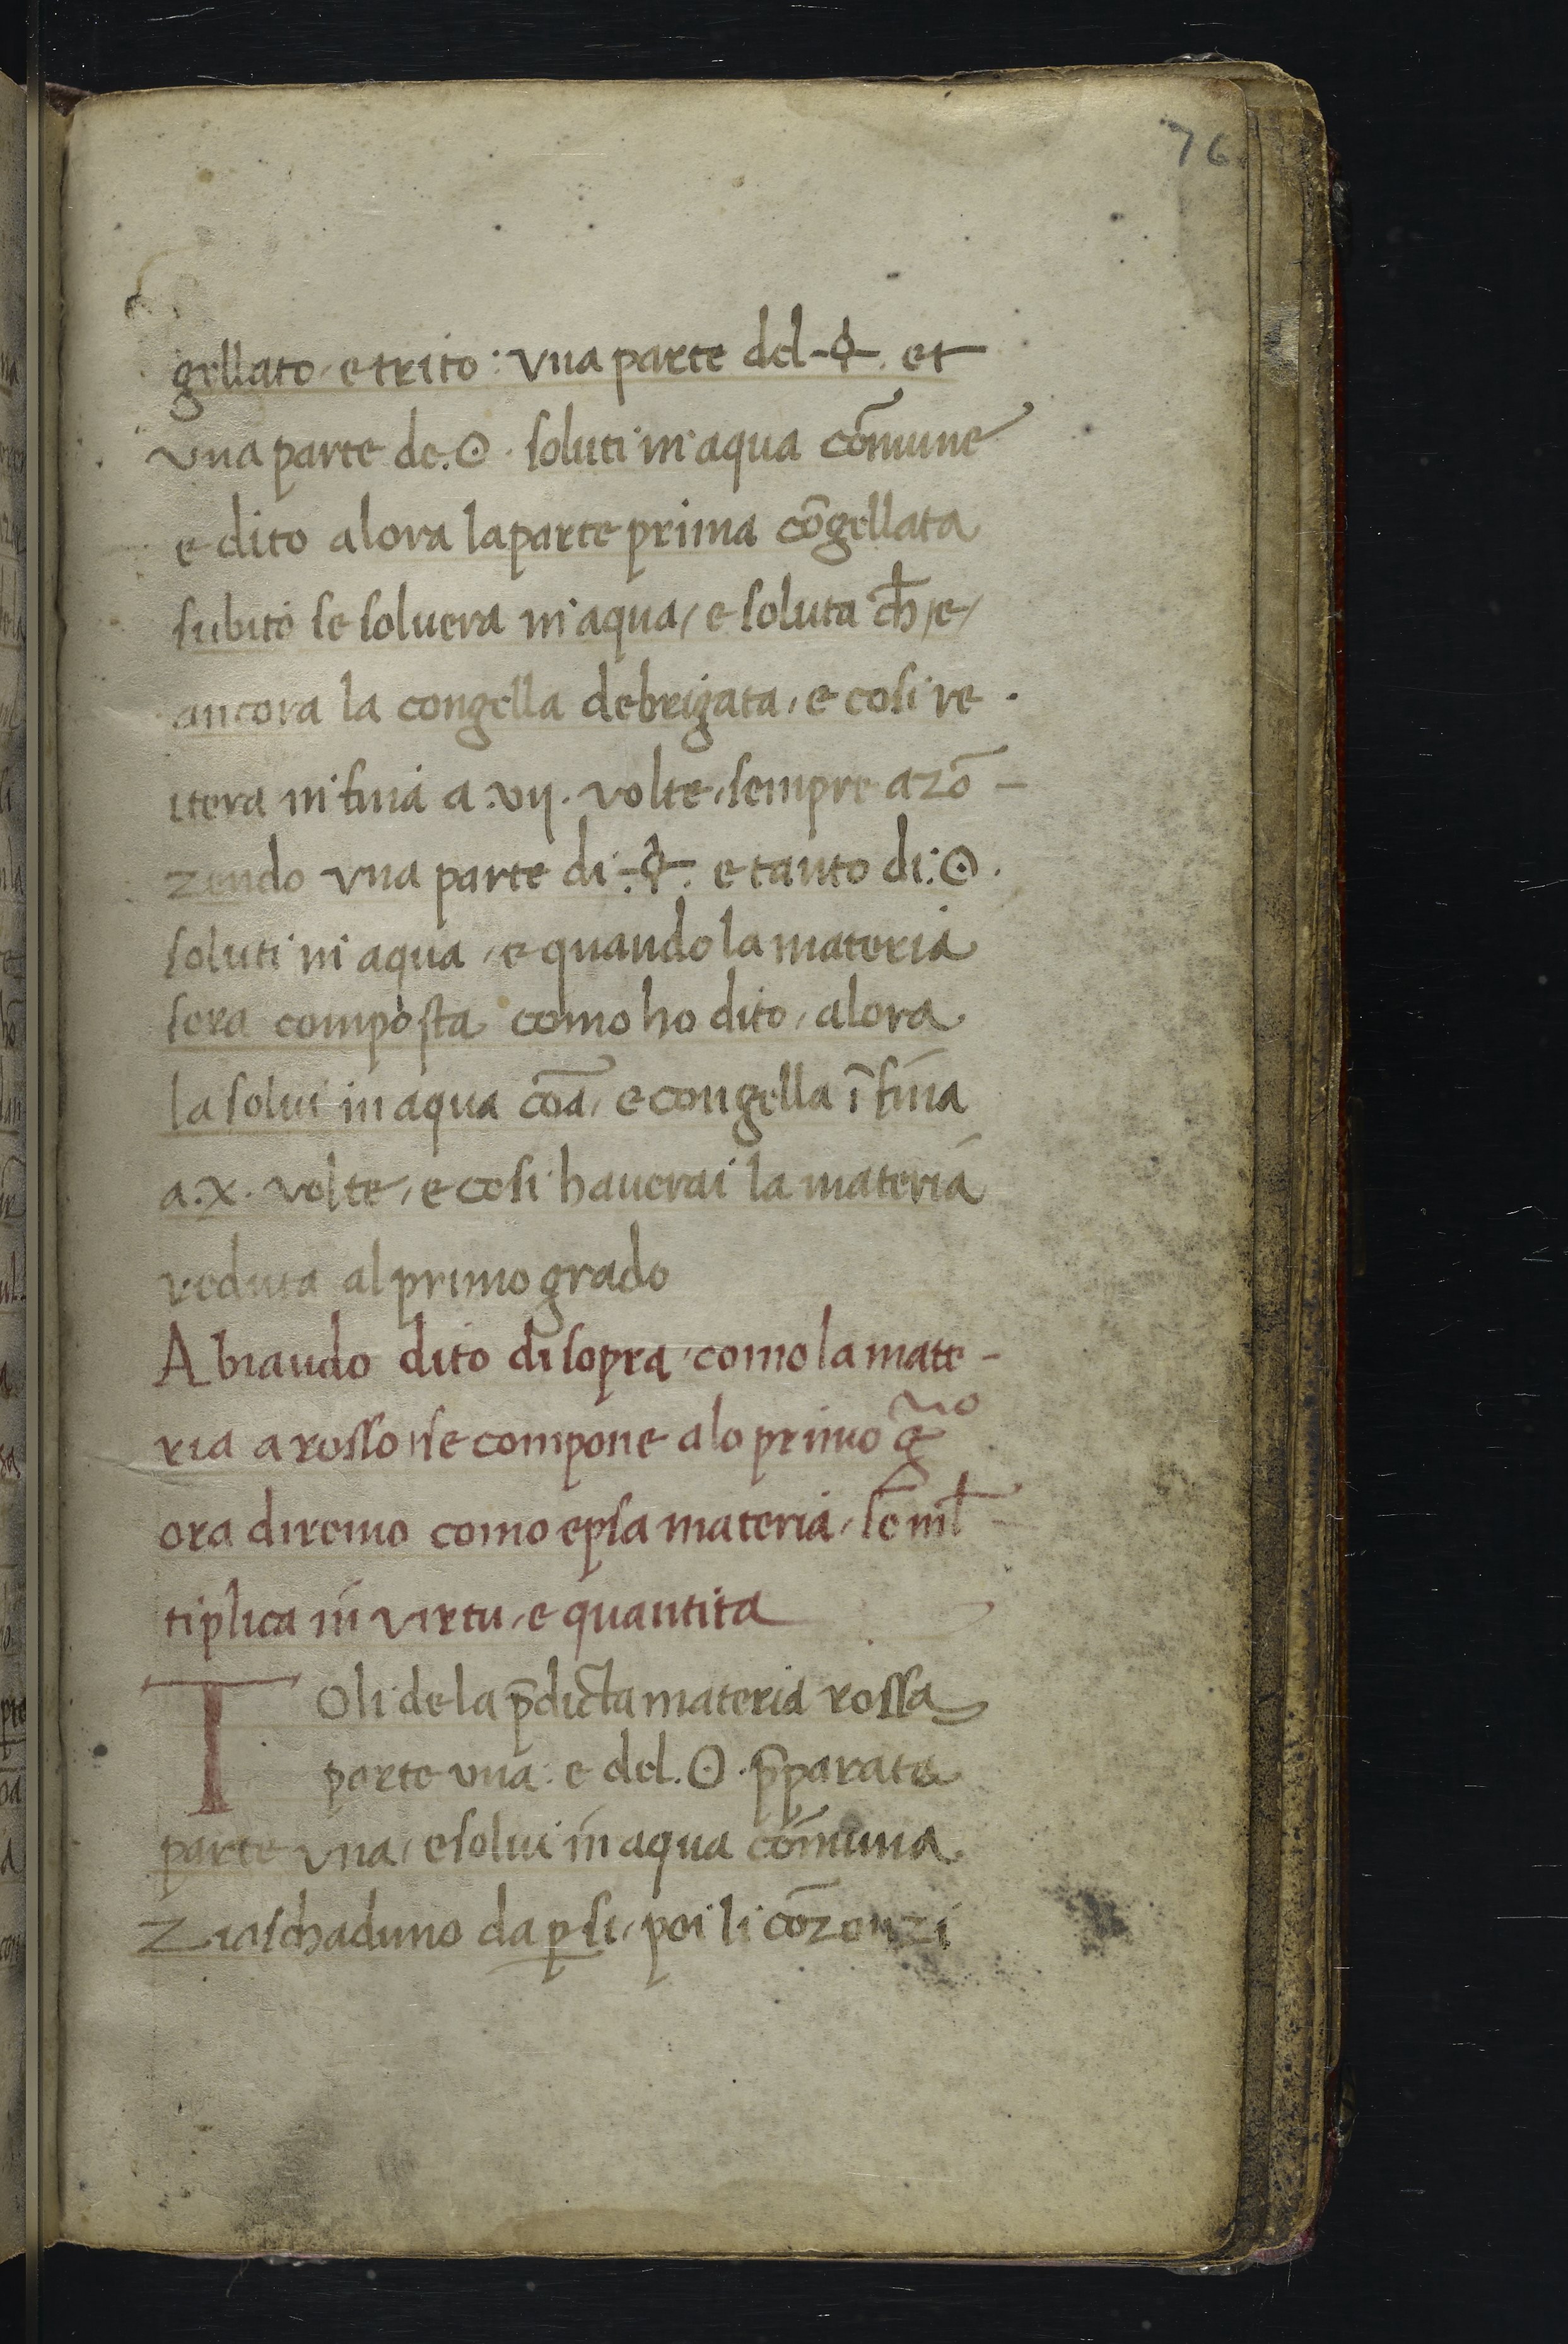 76
gellato / e trito : vna parte del ☿ . et
vna parte de . ☉ . soluti in aqua com̄une
e dito alora la parte prima cōgellata
subito se soluera in aqua / e soluta ch̄ / e /
ancora la congella debrigata / e cosi re
itera in fina a . vij . volte / sempre azō -
zendo vna parte di . ☿ . e tanto di . ☉ .
soluti in aqua / e quando la materia
sera composta como ho dito / alora
la solui in aqua coā / e congella ī fina
a . x . volte / e cosi hauerai la materia
reduta al primo grado
Abiando dito di sopra / como la mate -
ria a rosso se compone a lo primo g̃º
ora diremo como epsa materia / se ml̄ -
tiplica in virtu / e quantita
Toli de la p̄dicta materia rossa
parte vna : e del . ☉ . p̄parata
parte vna / e solui in aqua com̄una
Ziaschaduno da ꝑ si / poi li cōzonzi